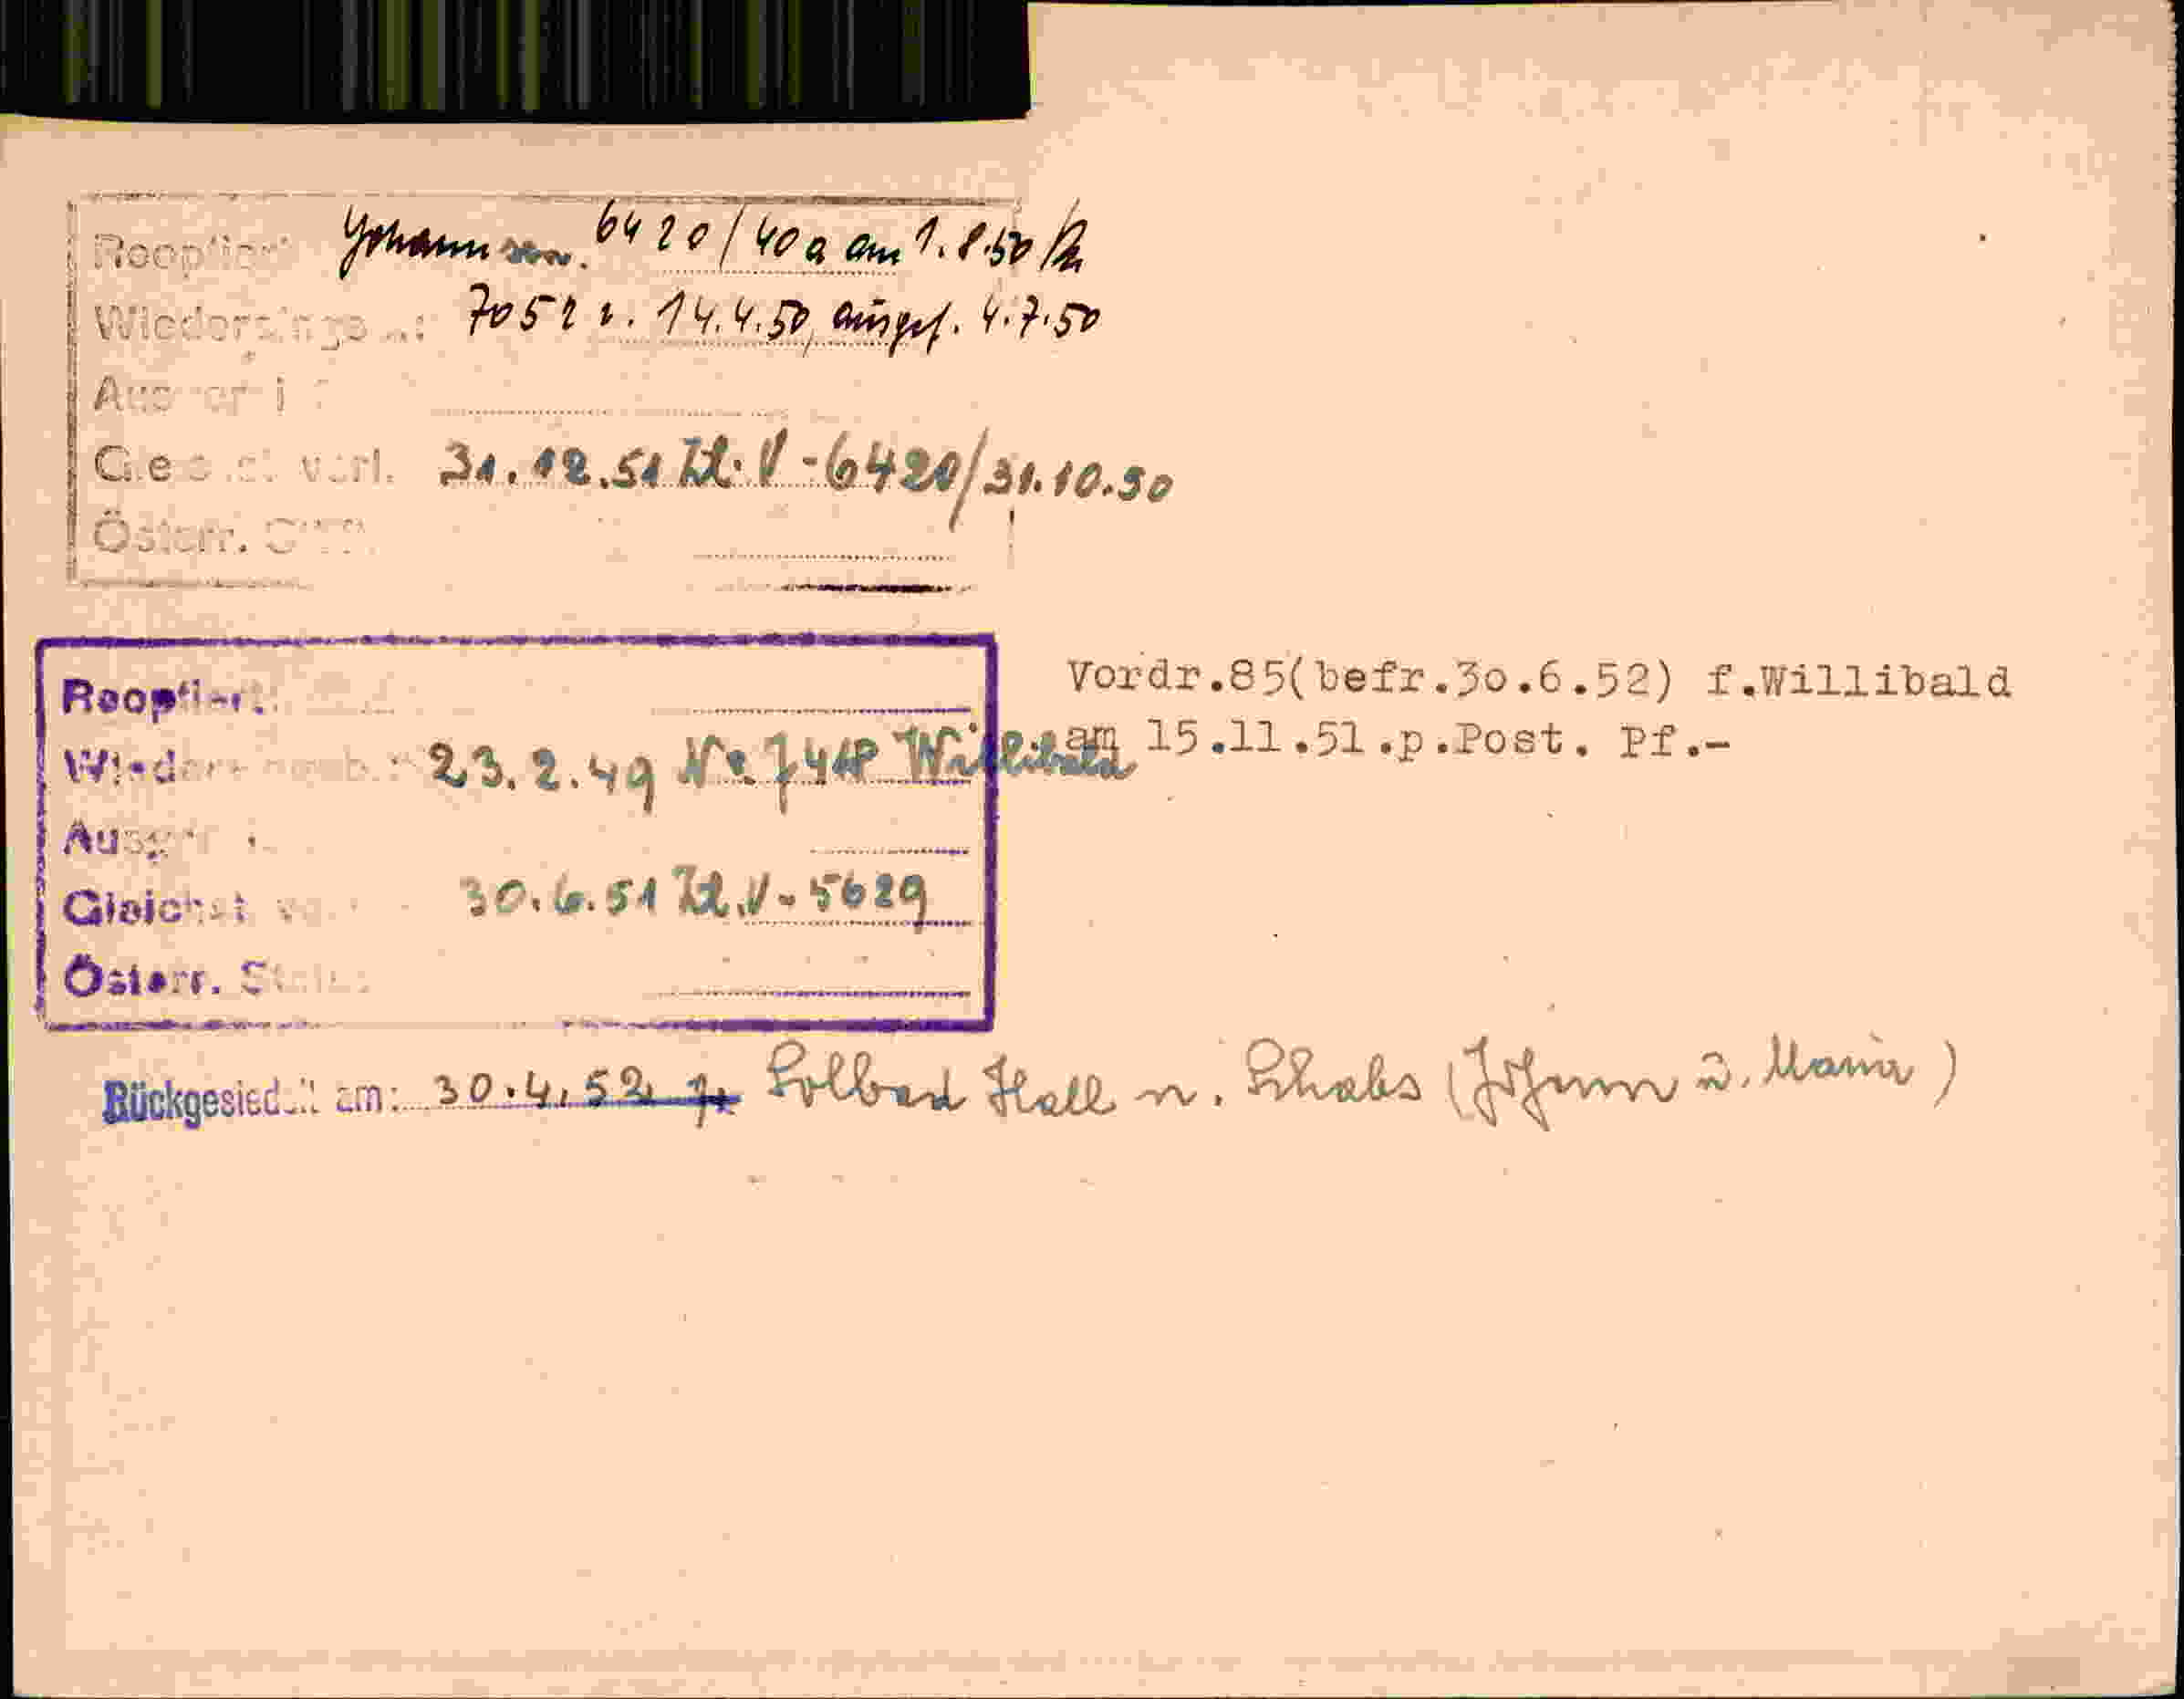 Reoptiert Johann sen. 6420/40a am 1.8.50
7052 v. 14.4.50, ausgef. 4.7.50
verl. 31.12.51 Zl. V-6420/31.10.50
Österr.
Reoptiert:
23.2.49 Nr. 7418 Willibald
30.6.51 Zl. V-5629
Österr.
Vordr.85(befr.3o.6.52) f.Willibald
am 15.11.51.p.Post. Pf.-
Rückgesiedelt am: 30.4.52 Solbad Hall n. Schabs (Johann u. Maria)